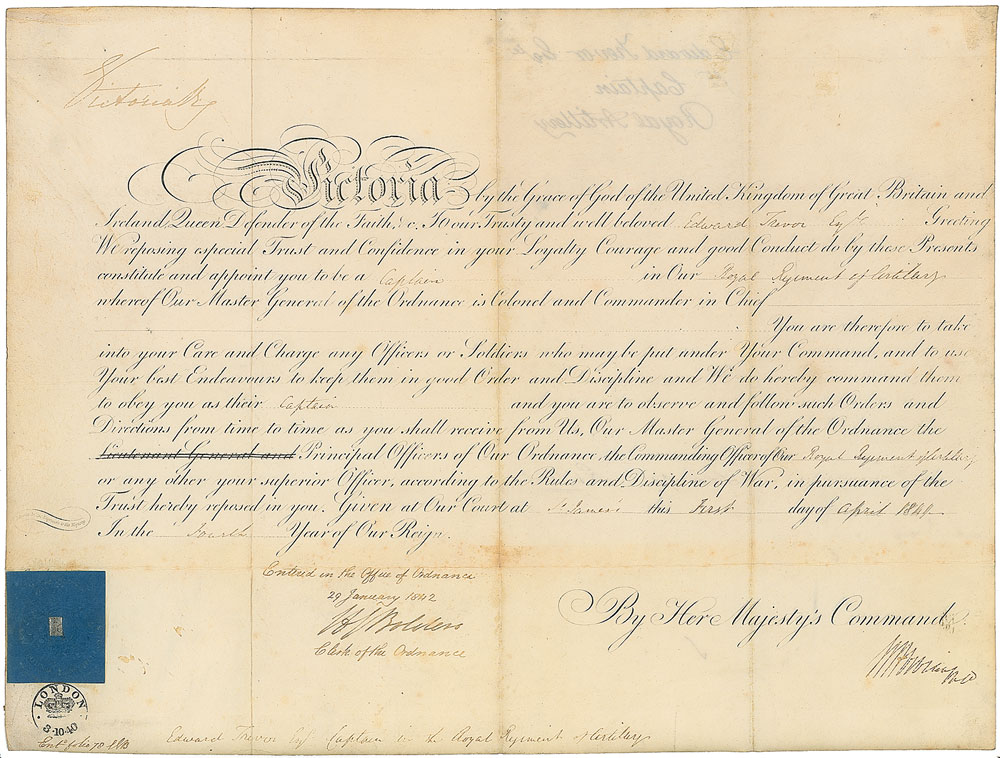 Victoria R
Edward Trevor Esqr.
Captain
Royal Artillery
Victoria by the Grace of God of the United Kingdom of Great Britain and
Ireland, Queen, Defender of the Faith, &c. To our Trusty and well beloved Edward Trevor Esqr. Greeting
We reposing especial Trust and Confidence in your Loyalty Courage and good Conduct do by these Presents
constitute and appoint you to be a Captain in Our Royal Regiment of Artillery
whereof Our Master General of the Ordnance is Colonel and Commander in Chief
You are therefore to take
into your Care and Charge any Officers or Soldiers who may be put under Your Command, and to use
Your best Endeavours to keep them in good Order and Discipline and We do hereby command them
to obey you as their Captain and you are to observe and follow such Orders and
Directions from time to time as you shall receive from Us, Our Master General of the Ordnance the
Lieutenant General and Principal Officers of Our Ordnance, the Commanding Officer of Our Royal Regiment of Artillery
or any other your superior Officer, according to the Rules and Discipline of War, in pursuance of the
Trust hereby reposed in you. Given at Our Court at St. James's this First day of April 1841
In the Fourth Year of Our Reign.
Entered in the Office of Ordnance
29 January 1842
Clerk of the Ordnance
By Her Majesty's Command
LONDON
3·10·40
Entd. folio 78
Edward Trevor Esqr. Captain in the Royal Regiment of Artillery